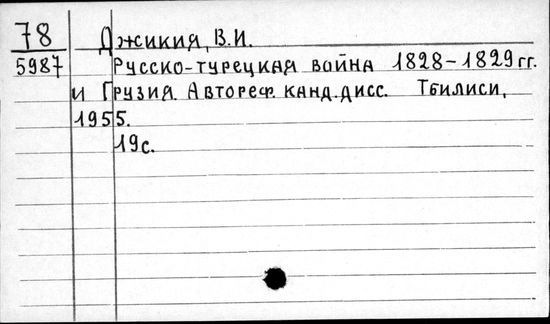 78 Джикия, В.И.
5987 Русско-турецкая война 1828-1829 гг.
и Грузия. Автореф. канд. дисс. Тбилиси,
1955.
19с.